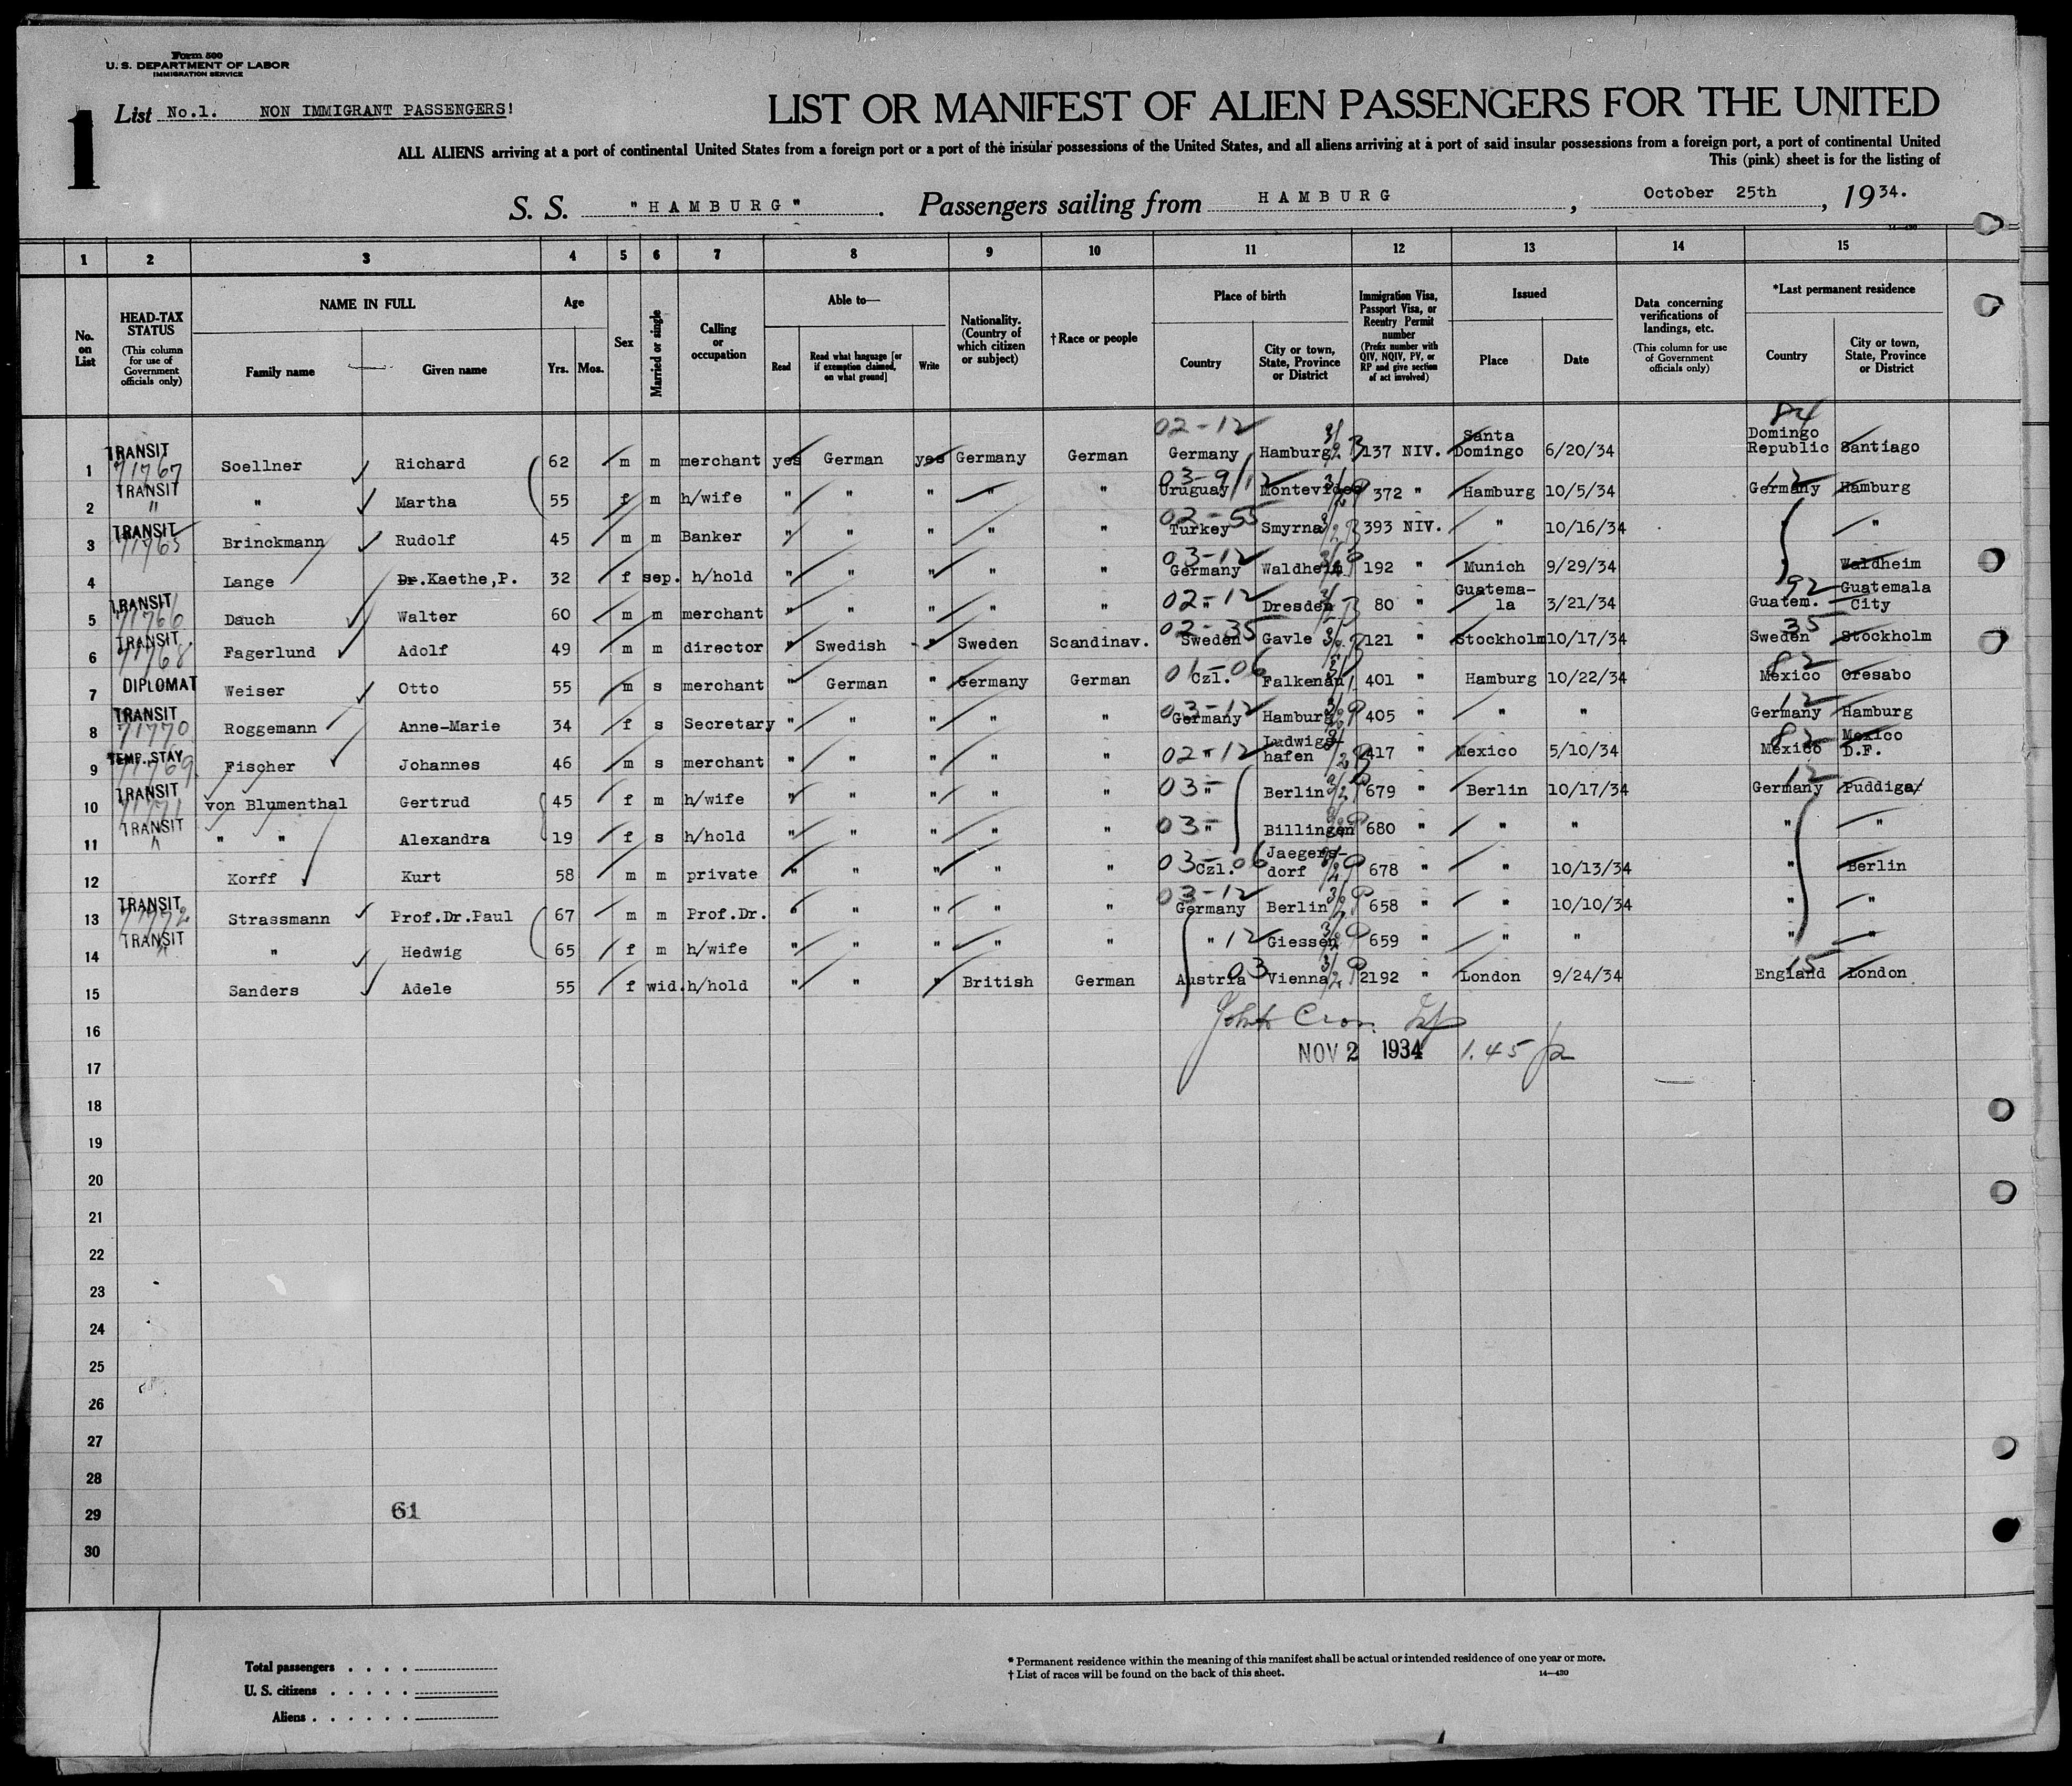 Form 500
U. S. DEPARTMENT OF LABOR
IMMIGRATION SERVICE
1
List No.1. NON IMMIGRANT PASSENGERS!
LIST OR MANIFEST OF ALIEN PASSENGERS FOR THE UNITED
ALL ALIENS arriving at a port of continental United States from a foreign port or a port of the insular possessions of the United States, and all aliens arriving at a port of said insular possessions from a foreign port, a port of continental United
This (pink) sheet is for the listing of
S. S. "HAMBURG". Passengers sailing from HAMBURG, October 25th, 1934.
1 2 3 4 5 6 7 8 9 10 11 12 13 14 15
No. on List
HEAD-TAX STATUS (This column for use of Government officials only)
NAME IN FULL
Family name Given name
Age
Yrs. Mos.
Sex
Married or single
Calling or occupation
Able to—
Read
Read what language [or if exemption claimed, on what ground]
Write
Nationality. (Country of which citizen or subject)
†Race or people
Place of birth
Country
City or town, State, Province or District
Immigration Visa, Passport Visa, or Reentry Permit number (Prefix number with QIV, NQIV, PV, or RP and give section of act involved)
Issued
Place Date
Data concerning verifications of landings, etc. (This column for use of Government officials only)
*Last permanent residence
Country
City or town, State, Province or District
1 TRANSIT 71767 Soellner Richard 62 m m merchant yes German yes Germany German 02-12 Germany Hamburg 137 NIV. Santa Domingo 6/20/34 84 Domingo Republic Santiago
2 TRANSIT " " Martha 55 f m h/wife " " " " " 03-9/12 Uruguay Montevideo 372 " Hamburg 10/5/34 12 Germany Hamburg
3 TRANSIT 71765 Brinckmann Rudolf 45 m m Banker " " " " " 02-55 Turkey Smyrna 393 NIV. " 10/16/34 " "
4 Lange Dr.Kaethe,P. 32 f sep. h/hold " " " " " 03-12 Germany Waldheim 192 " Munich 9/29/34 Waldheim
5 TRANSIT 71766 Dauch Walter 60 m m merchant " " " " " 02-12 " Dresden 80 " Guatema-la 3/21/34 92 Guatem. Guatemala City
6 TRANSIT 71768 Fagerlund Adolf 49 m m director " Swedish " Sweden Scandinav. 02-35 Sweden Gavle 121 " Stockholm 10/17/34 35 Sweden Stockholm
7 DIPLOMAT Weiser Otto 55 m s merchant " German " Germany German 01-06 Czl. Falkenau 401 " Hamburg 10/22/34 82 Mexico Oresabo
8 TRANSIT 71770 Roggemann Anne-Marie 34 f s Secretary " " " " " 03-12 Germany Hamburg 405 " " " 12 Germany Hamburg
9 TEMP. STAY 71769 Fischer Johannes 46 m s merchant " " " " " 02-12 " Ludwigs-hafen 417 " Mexico 5/10/34 82 Mexico Mexico D.F.
10 TRANSIT 71771 von Blumenthal Gertrud 45 f m h/wife " " " " " 03- " Berlin 679 " Berlin 10/17/34 12 Germany Puddiga
11 TRANSIT " " " Alexandra 19 f s h/hold " " " " " 03- " Billingen 680 " " " " "
12 Korff Kurt 58 m m private " " " " " 03-06 Czl. Jaegers-dorf 678 " " 10/13/34 " Berlin
13 TRANSIT 71772 Strassmann Prof.Dr.Paul 67 m m Prof.Dr. " " " " " 03-12 Germany Berlin 658 " " 10/10/34 " "
14 TRANSIT " " Hedwig 65 f m h/wife " " " " " " 12 Giessen 659 " " " " "
15 Sanders Adele 55 f wid. h/hold " " " British German Austria 03 Vienna 2192 " London 9/24/34 15 England London
16 John
17 NOV 2 1934 1.45
18
19
20
21
22
23
24
25
26
27
28
29 61
30
Total passengers
U. S. citizens
Aliens
* Permanent residence within the meaning of this manifest shall be actual or intended residence of one year or more.
† List of races will be found on the back of this sheet. 14—430